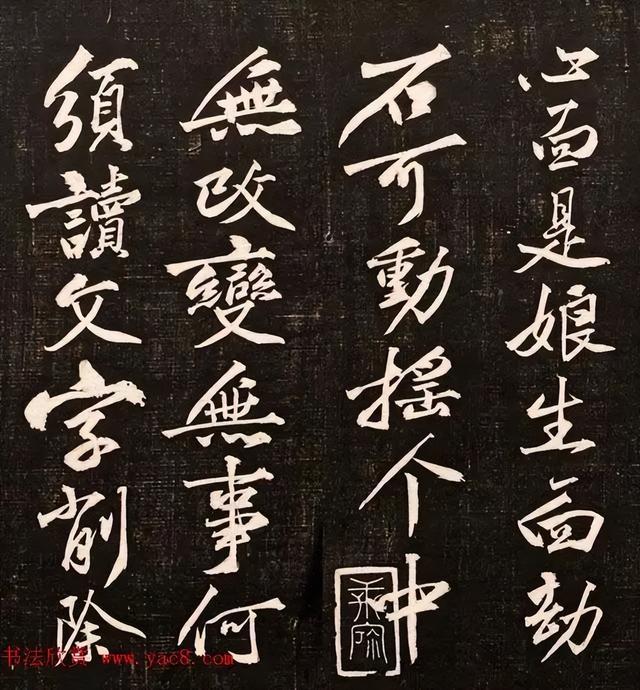 心面是娘生面劫
石可動摇个中
無改變無事何
須讀文字削除
书法欣赏 www.yac8.com